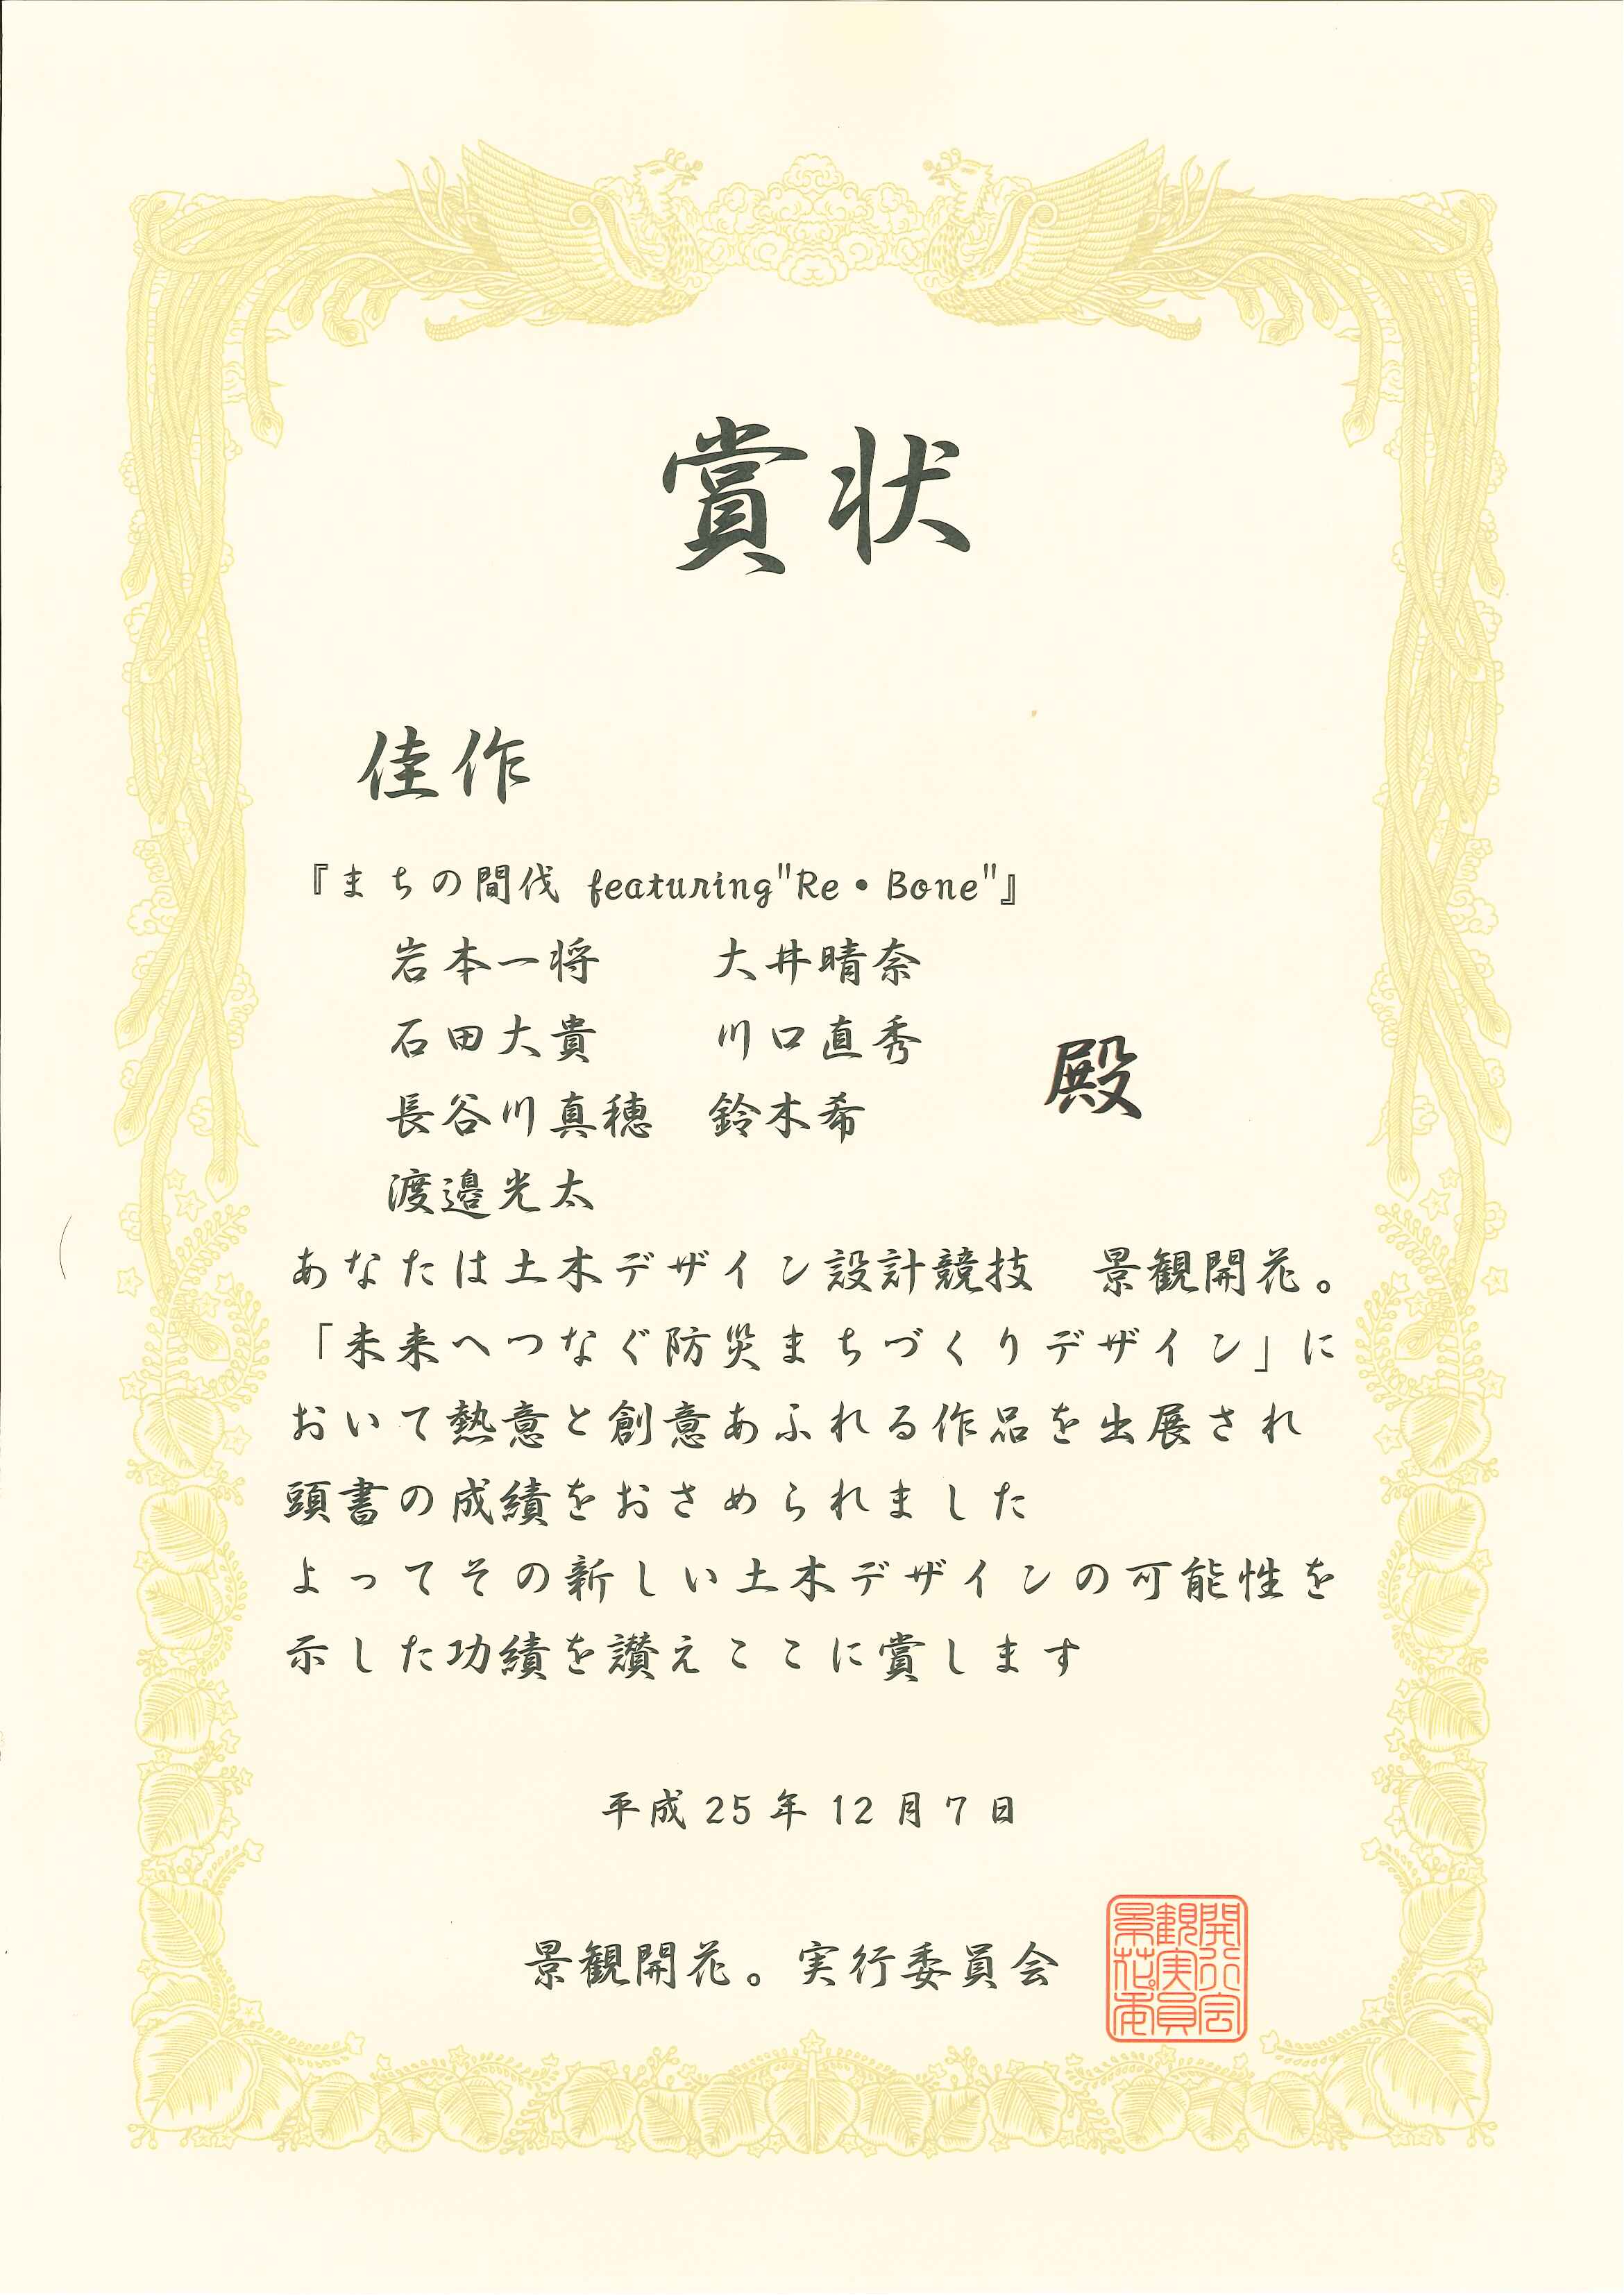 賞状
佳作
『まちの間伐 featuring"Re・Bone"』
岩本一将 大井晴奈
石田大貴 川口直秀
長谷川真穂 鈴木希
渡邉光太
殿
あなたは土木デザイン設計競技 景観開花。
「未来へつなぐ防災まちづくりデザイン」に
おいて熱意と創意あふれる作品を出展され
頭書の成績をおさめられました
よってその新しい土木デザインの可能性を
示した功績を讃えここに賞します
平成25年12月7日
景観開花。実行委員会
景観開花。実行委員会